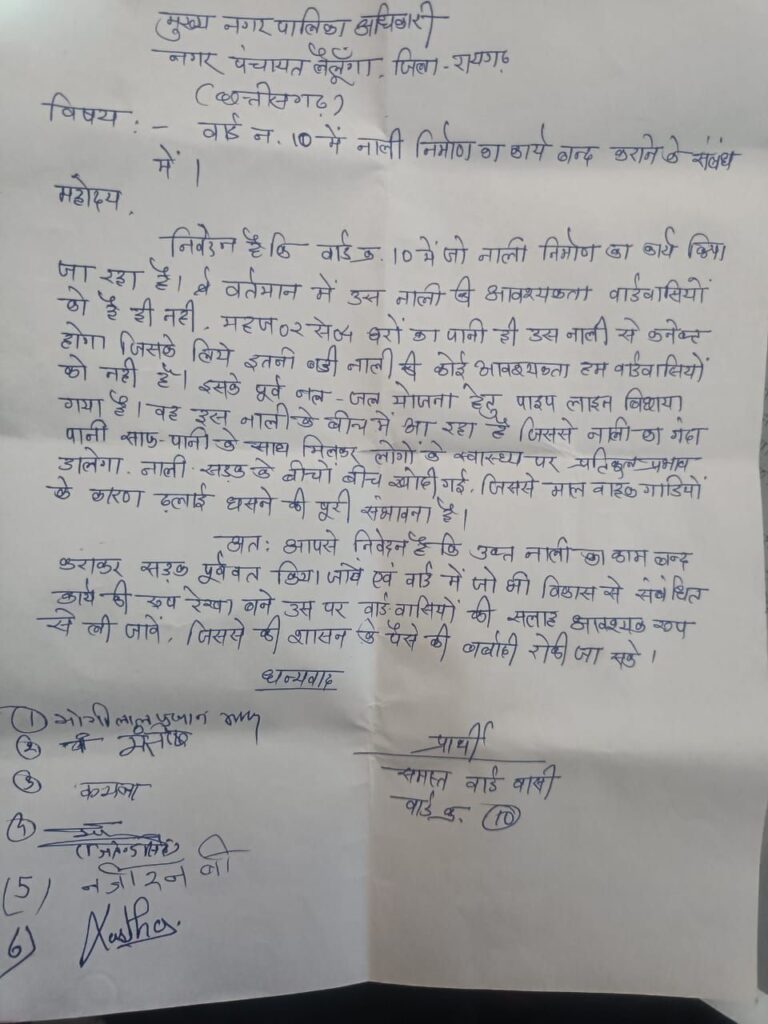 मुख्य नगर पालिका अधिकारी
नगर पंचायत लैलूँगा, जिला - रायगढ़
(छत्तीसगढ़)
विषय :- वार्ड न. 10 में नाली निर्माण का कार्य बन्द कराने के संबंध
में।
महोदय,
निवेदन है कि वार्ड क्र. 10 में जो नाली निर्माण का कार्य किया
जा रहा है। वर्तमान में उस नाली की आवश्यकता वार्डवासियों
को है ही नही, महज 02 से 04 घरों का पानी ही उस नाली से कनेक्ट
होगा जिसके लिये इतनी बडी नाली की कोई आवश्यकता हम वार्डवासियों
को नही है। इसके पूर्व नल - जल योजना हेतु पाइप लाइन बिछाया
गया है। वह इस नाली के बीच में आ रहा है जिससे नाली का गंदा
पानी साफ-पानी के साथ मिलकर लोगों के स्वास्थ्य पर प्रतिकुल प्रभाव
डालेगा. नाली सड़क के बीचों बीच खोदी गई, जिससे माल वाहक गाडियों
के कारण ढ़लाई धसने की पूरी संभावना है।
अतः आपसे निवेदन है कि उक्त नाली का काम बन्द
कराकर सड़क पूर्ववत किया जावें एवं वार्ड में जो भी विकास से संबंधित
कार्य की रूप रेखा बने उस पर वार्डवासियों की सलाह आवश्यक रूप
से ली जावें, जिससे की शासन के पैसे की बर्बादी रोकी जा सके।
धन्यवाद
(1) भोगीलाल प्रधान
(2)
(3) कमला
(4)
(5) नजीरन बी
6)
प्रार्थी
समस्त वार्ड वासी
वार्ड क्र. (10)